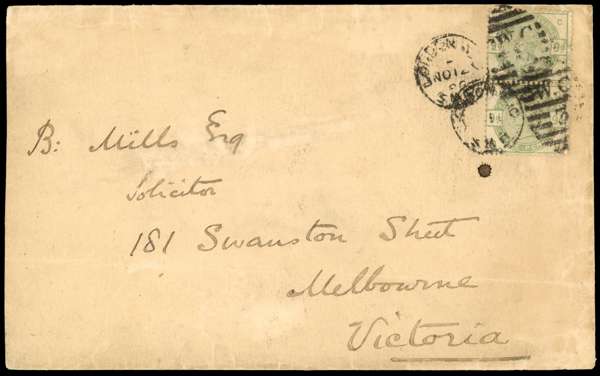 LONDON
NO 12
B: Mills Esq
Solicitor
181 Swanston Street
Melbourne
Victoria